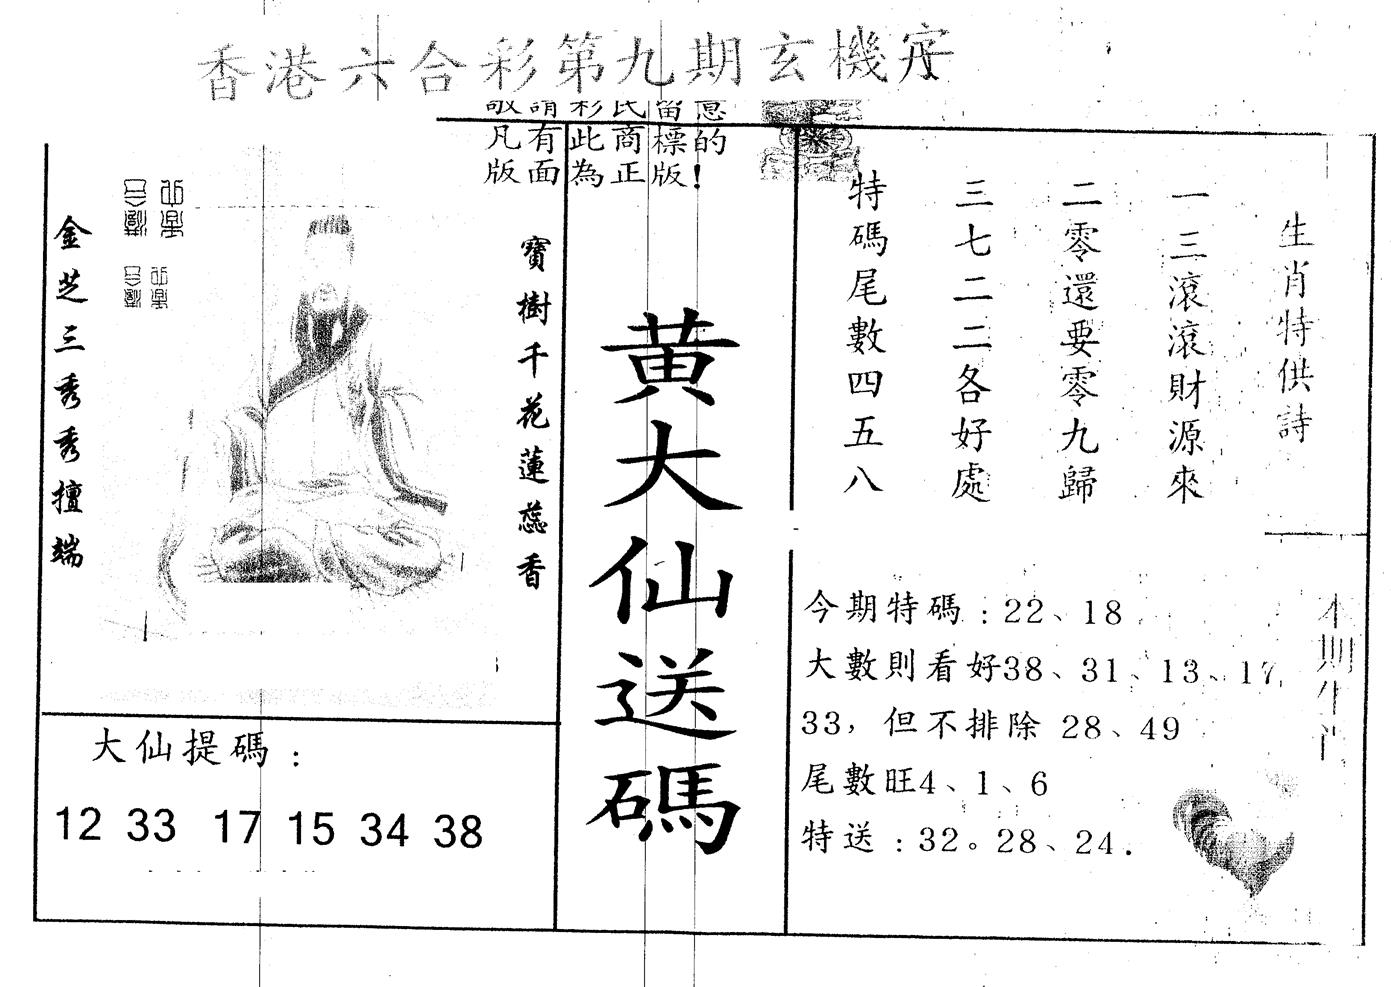 香港六合彩第九期玄機字
敬請彩民留意
凡有此商標的
版面為正版!
生肖特供詩
一三滾滾財源來
二零還要零九歸
三七二二各好處
特碼尾數四五八
黃大仙送碼
寶樹千花蓮蕊香
金芝三秀秀擅端
大仙提碼:
12 33 17 15 34 38
今期特碼:22、18
大數則看好38、31、13、17
33,但不排除 28、49
尾數旺4、1、6
特送:32。28、24.
本期生肖